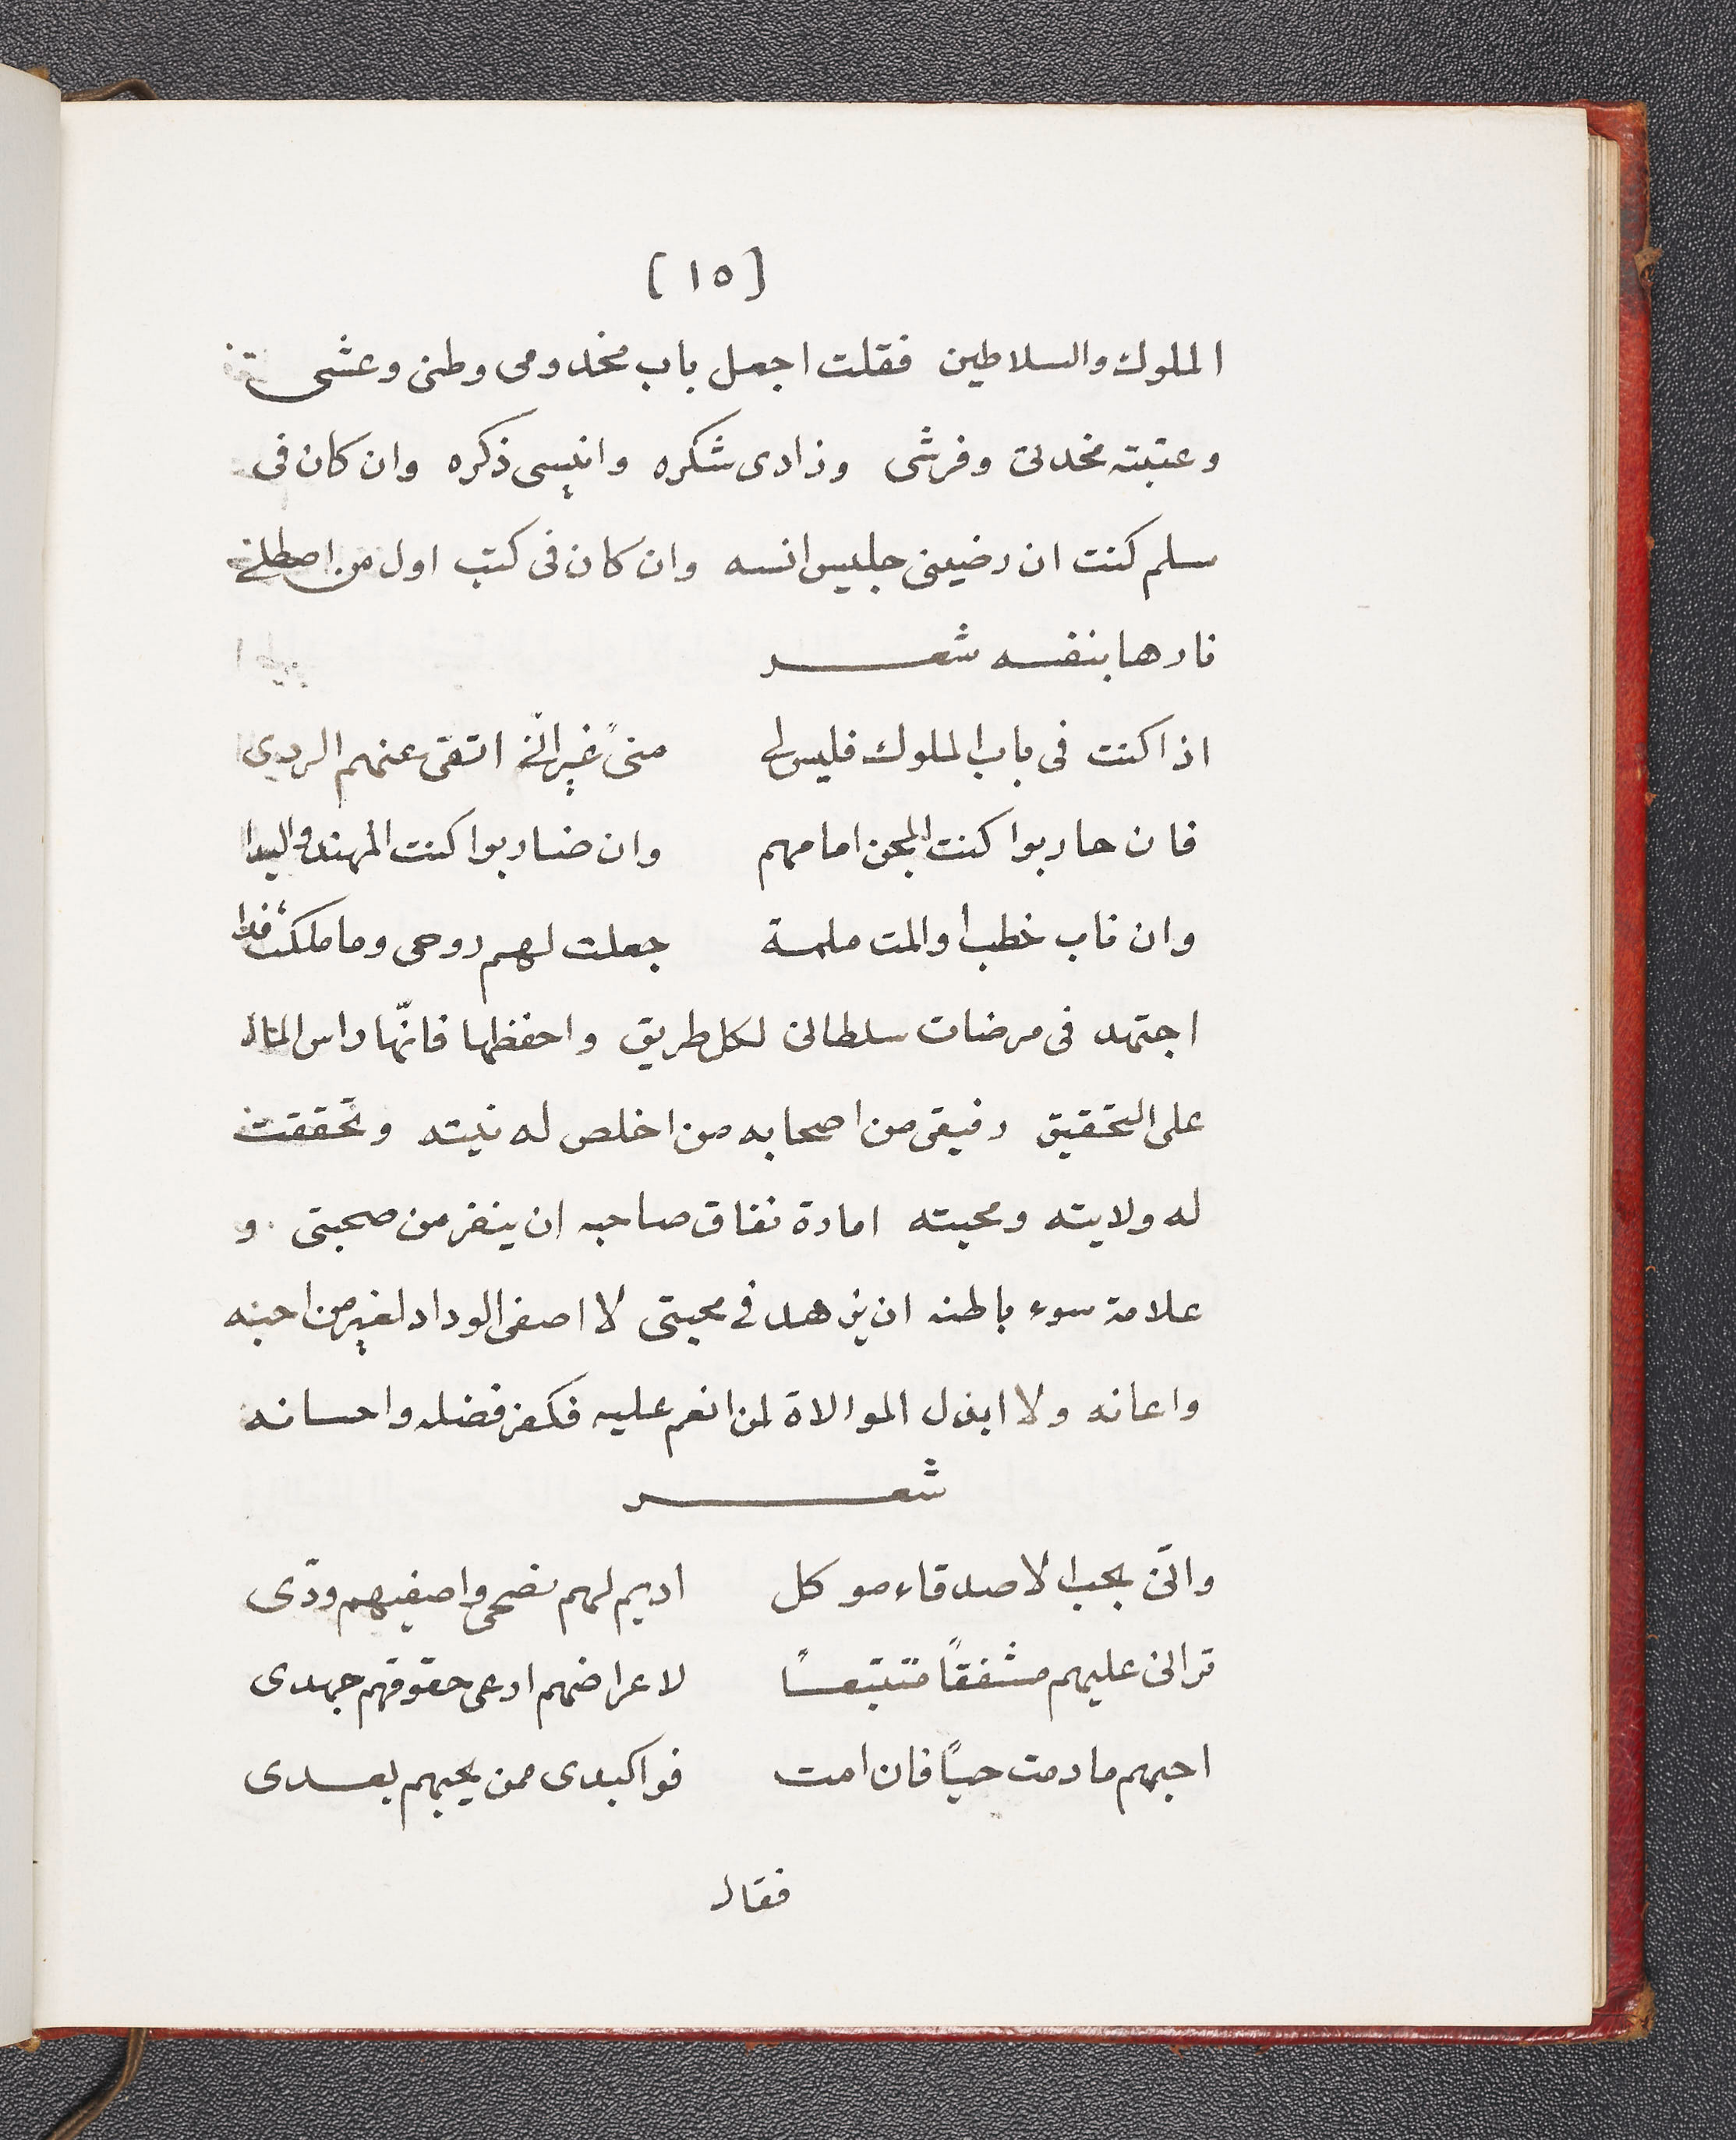 [ ١٥ ]
الملوك والسلاطين فقلت اجعل باب مخدومى وطنى وعشى
وعتبته مخدتى وفرشى وزادى شكره وانيسى ذكره وان كان فى
سلم كنت ان رضينى جليس انسه وان كان فى كتب اول من اصطلى
نارها بنفسه شعر
اذا كنت فى باب الملوك فليس لى منىً غير انّى اتقى عنهم الردى
فان حاربوا كنت المجن امامهم وان ضاربوا كنت المهند واليدا
وان ناب خطب أو المت ملمة جعلت لهم روحى وما ملكت فدا
اجتهد فى مرضات سلطانى لكل طريق واحفظها فانّها راس المال
على التحقيق رفيقى من اصحابه من اخلص له نيته وتحققت
له ولايته ومحبته امارة نفاق صاحبه ان ينفر من صحبتى و
علامة سوء باطنه ان يزهد فى محبتى لا اصفى الوداد لغير من احبنه
واعانه ولا ابذل الموالاة لمن انعم عليه فكفر فضله واحسانه
شعر
وانّى بحب الاصدقاء موكل اديم لهم نصحى واصفيهم ودّى
ترانى عليهم مشفقاً متتبّعاً لاعراضهم ارعى حقوقهم جهدى
احبهم ما دمت حيّاً فان امت فواكبدى ممن يحبهم بعدى
فقال